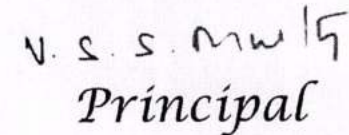 V. S. S. Murty
Principal